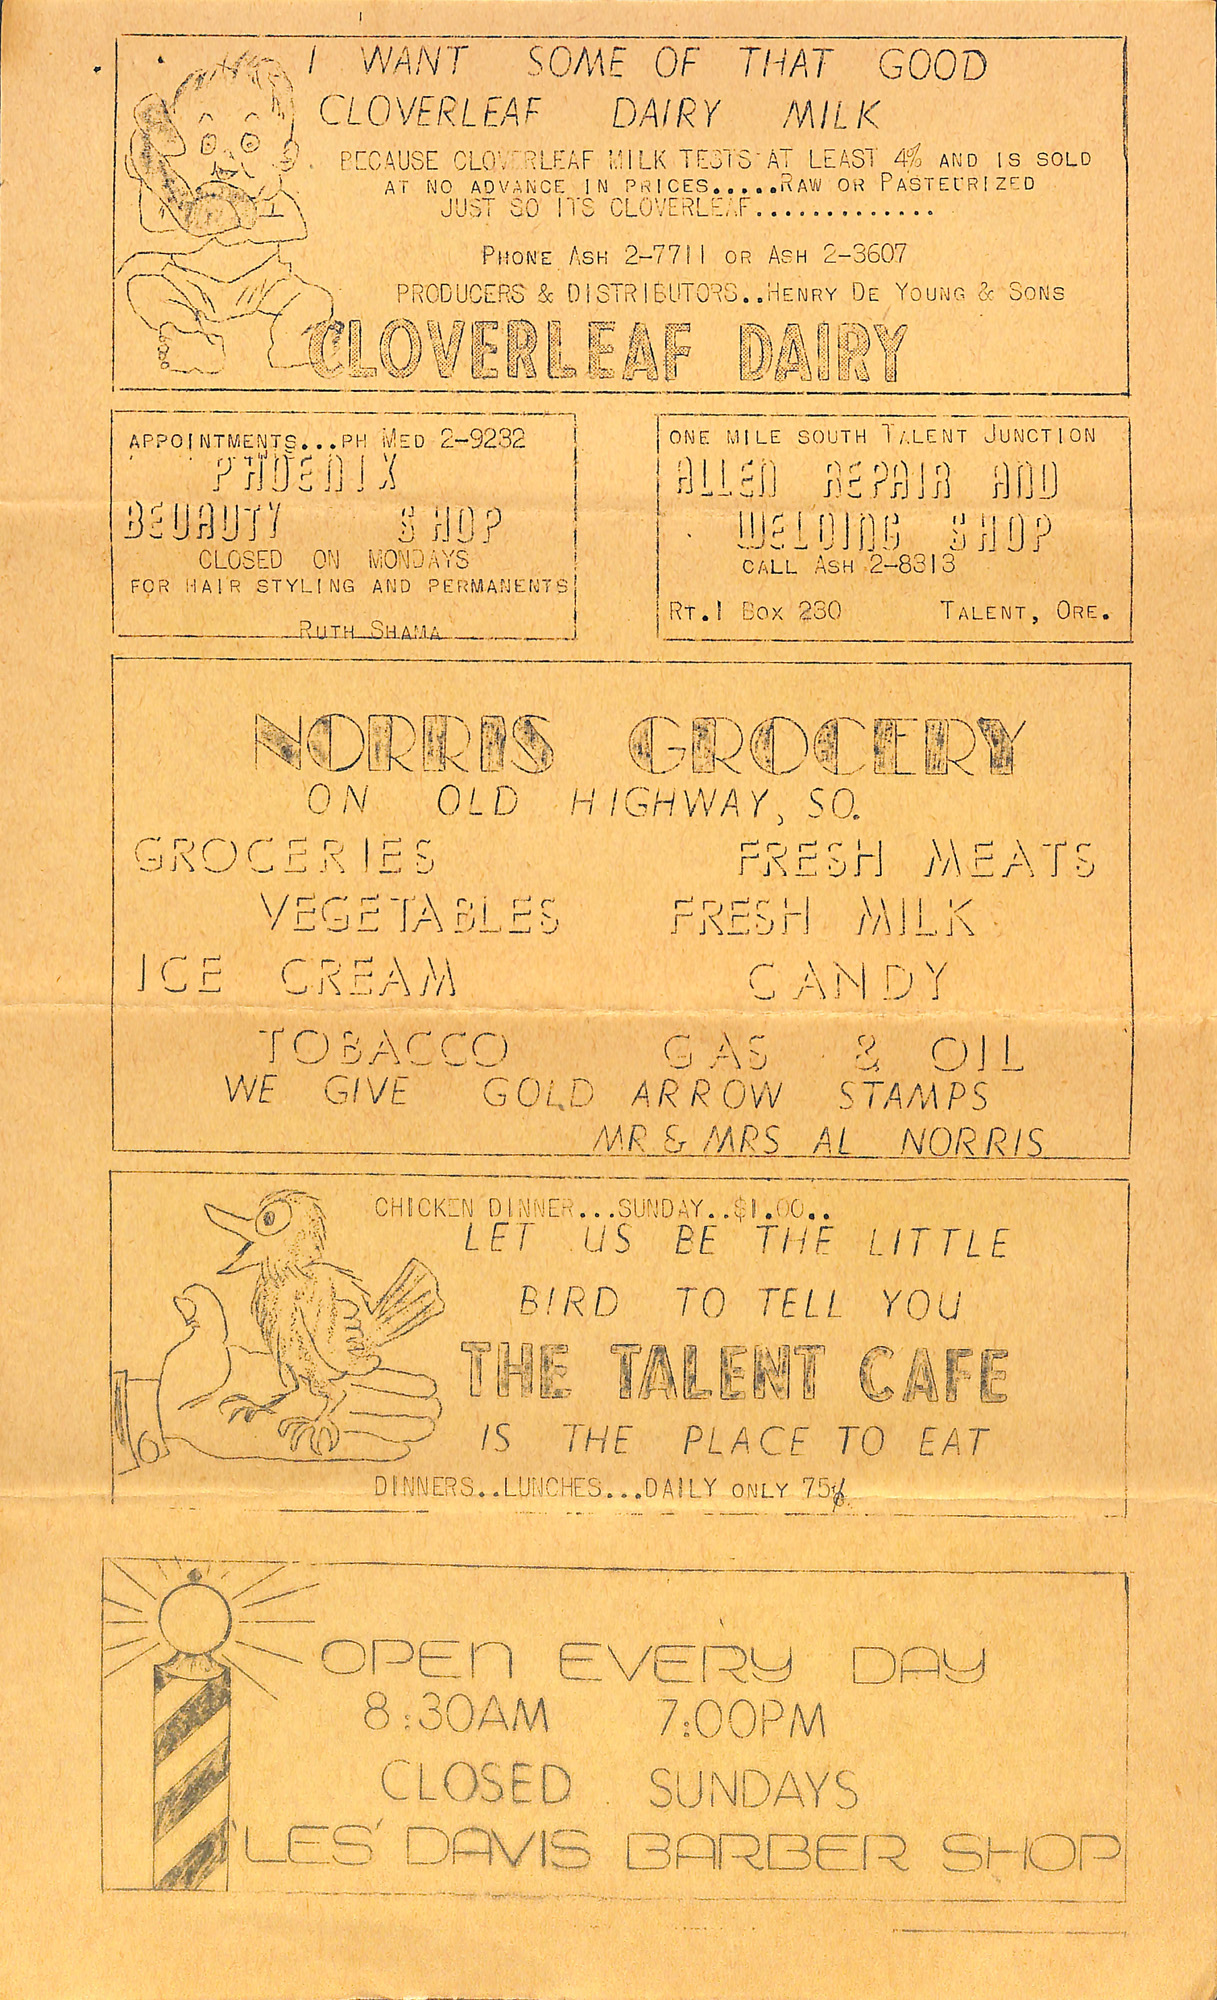 I WANT SOME OF THAT GOOD
CLOVERLEAF DAIRY MILK
BECAUSE CLOVERLEAF MILK TESTS AT LEAST 4% AND IS SOLD
AT NO ADVANCE IN PRICES.....RAW OR PASTEURIZED
JUST SO ITS CLOVERLEAF.............
PHONE ASH 2-7711 OR ASH 2-3607
PRODUCERS & DISTRIBUTORS..HENRY DE YOUNG & SONS
CLOVERLEAF DAIRY
APPOINTMENTS...PH MED 2-9232
PHOENIX
BEUAUTY SHOP
CLOSED ON MONDAYS
FOR HAIR STYLING AND PERMANENTS
RUTH SHAMA
ONE MILE SOUTH TALENT JUNCTION
ALLEN REPAIR AND
WELDING SHOP
CALL ASH 2-8313
RT.1 BOX 230 TALENT, ORE.
NORRIS GROCERY
ON OLD HIGHWAY, SO.
GROCERIES FRESH MEATS
VEGETABLES FRESH MILK
ICE CREAM CANDY
TOBACCO GAS & OIL
WE GIVE GOLD ARROW STAMPS
MR & MRS AL NORRIS
CHICKEN DINNER...SUNDAY..$1.00..
LET US BE THE LITTLE
BIRD TO TELL YOU
THE TALENT CAFE
IS THE PLACE TO EAT
DINNERS..LUNCHES...DAILY ONLY 75¢
OPEN EVERY DAY
8:30AM 7:00PM
CLOSED SUNDAYS
'LES' DAVIS BARBER SHOP